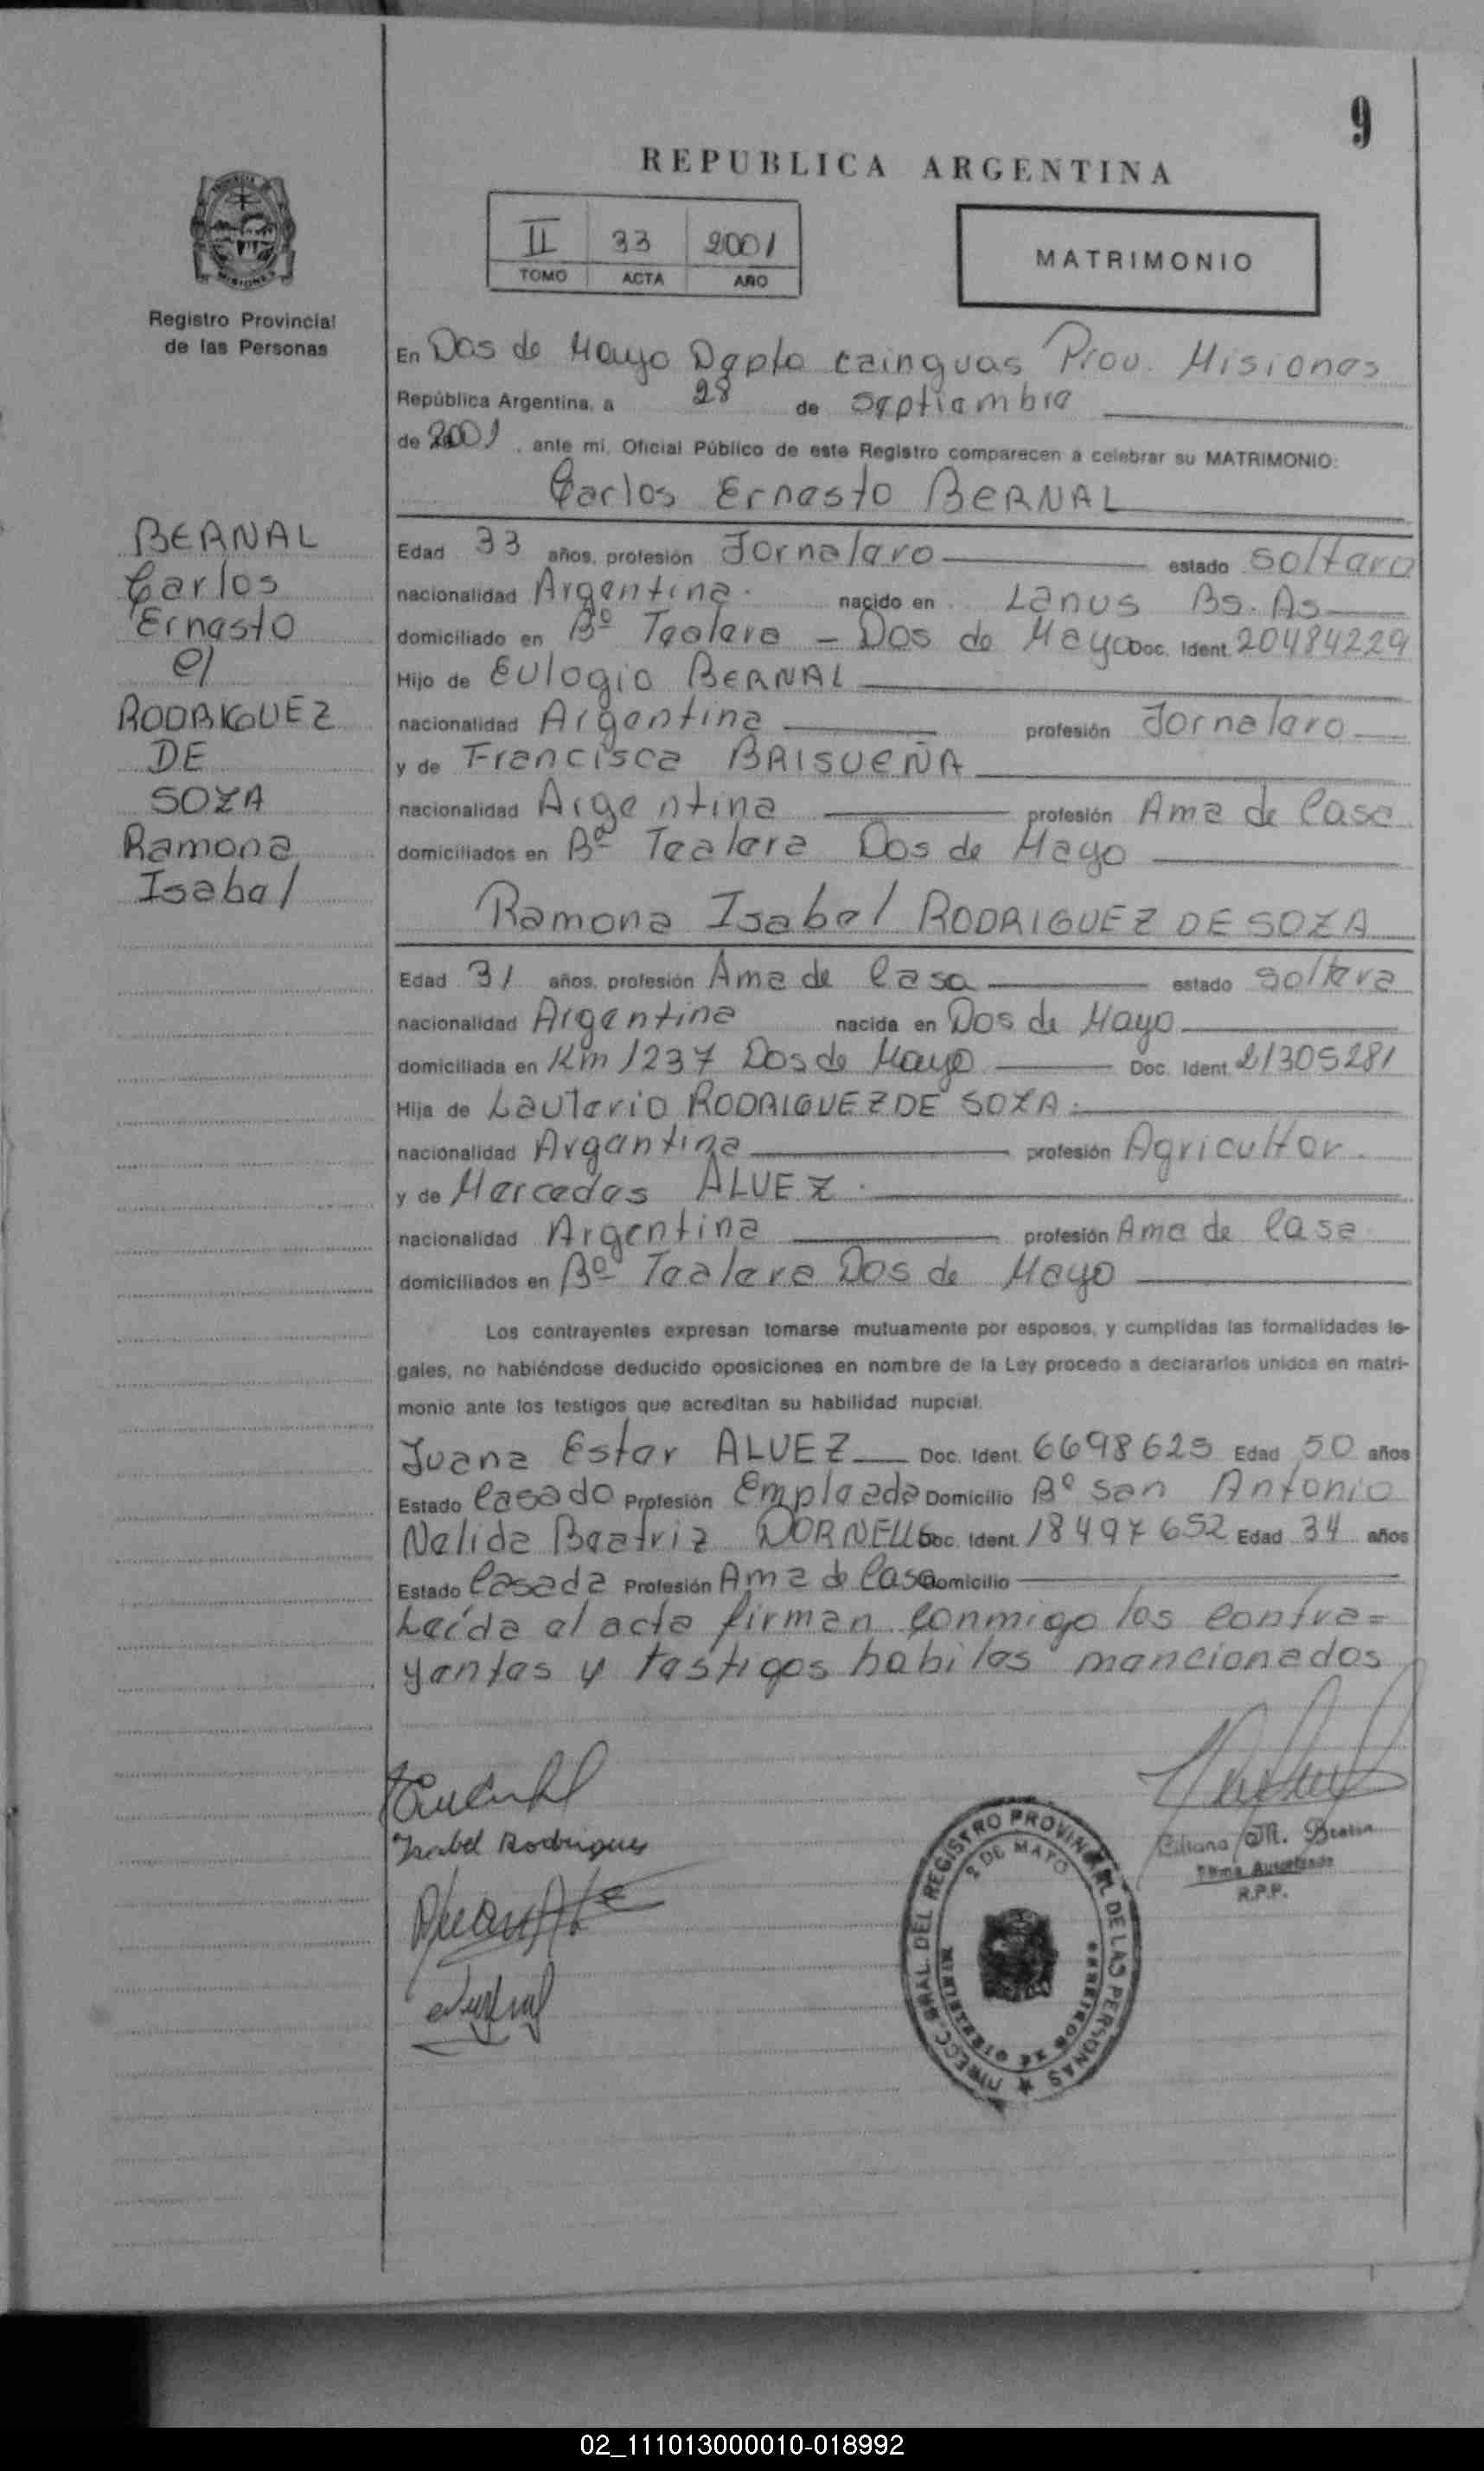 9
REPUBLICA ARGENTINA
II 33 2001
TOMO ACTA AÑO
MATRIMONIO
Registro Provincial
de las Personas
BERNAL
Carlos
Ernesto
c/
RODRIGUEZ
DE
SOZA
Ramona
Isabel
En Dos de Mayo Dpto Cainguas Prov. Misiones
República Argentina, a 28 de Septiembre
de 2001, ante mi, Oficial Público de este Registro comparecen a celebrar su MATRIMONIO:
Carlos Ernesto BERNAL
Edad 33 años, profesión Jornalero estado soltero
nacionalidad Argentina. nacido en Lanus Bs. As
domiciliado en Bº Tealera - Dos de Mayo Doc. Ident. 20484229
Hijo de Eulogio BERNAL
nacionalidad Argentina profesión Jornalero
y de Francisca BRISUEÑA
nacionalidad Argentina profesión Ama de Casa
domiciliados en Bº Tealera Dos de Mayo
Ramona Isabel RODRIGUEZ DE SOZA
Edad 31 años, profesión Ama de Casa estado soltera
nacionalidad Argentina nacida en Dos de Mayo
domiciliada en Km 1237 Dos de Mayo Doc. Ident. 21305281
Hija de Lauterio RODRIGUEZ DE SOZA.
nacionalidad Argentina profesión Agricultor.
y de Mercedes ALVEZ.
nacionalidad Argentina profesión Ama de Casa
domiciliados en Bº Tealera Dos de Mayo
Los contrayentes expresan tomarse mutuamente por esposos, y cumplidas las formalidades le-
gales, no habiéndose deducido oposiciones en nombre de la Ley procedo a declararlos unidos en matri-
monio ante los testigos que acreditan su habilidad nupcial.
Juana Ester ALVEZ Doc. Ident. 6698625 Edad 50 años
Estado Casado Profesión Empleada Domicilio Bº San Antonio
Nelida Beatriz DORNELLES Doc. Ident. 18497652 Edad 34 años
Estado Casada Profesión Ama de Casa Domicilio
Leída el acta firman conmigo los contra=
yentes y testigos habiles mencionados
Isabel Rodrigues
Liliana M.
Firma Autorizada
R.P.P.
GRAL. DEL REGISTRO PROVINCIAL DE LAS PERSONAS
2 DE MAYO
MINISTERIO DE GOBIERNO
02_111013000010-018992